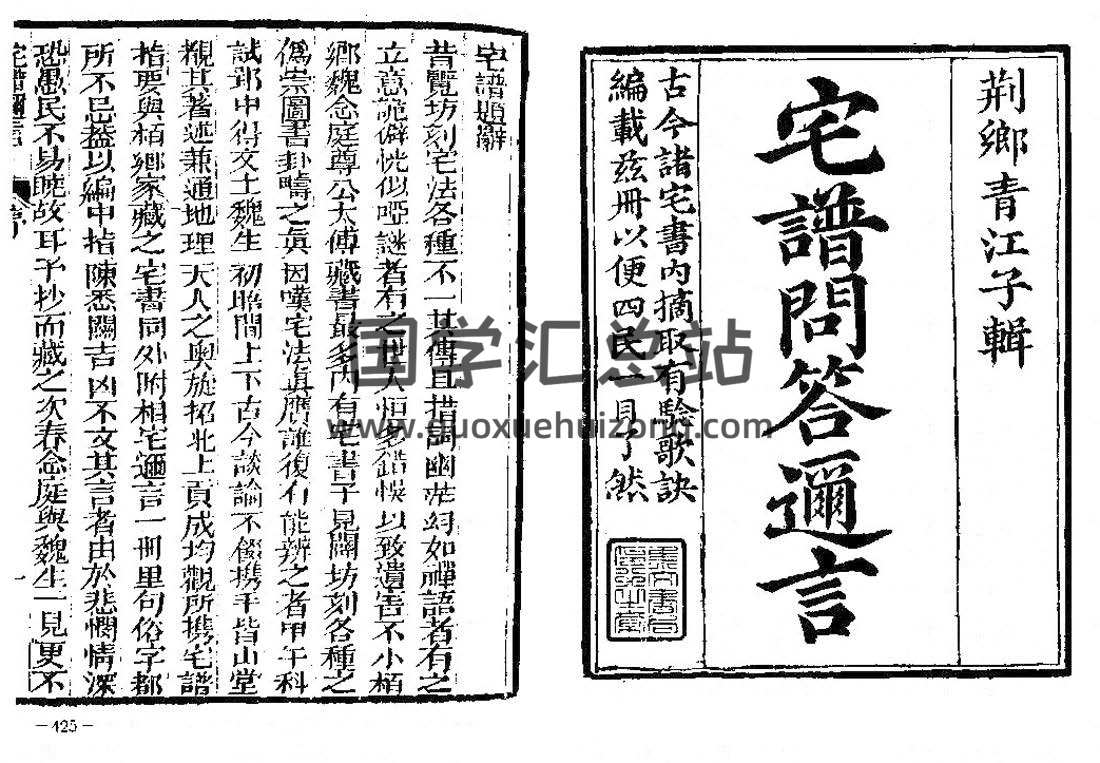 荆鄉青江子輯
宅譜問答邇言
古今諸宅書內摘取有驗歌訣
編載兹冊以便四民一見了然
宅譜題辭
昔覽坊刻宅法各種不一其傳且措調幽茫幻如禪語者有之
立意詭僻恍似啞謎者有之世人恒多錯悞以致遺害不小栢
鄉魏念庭尊公太傅藏書最多內有宅書予見闢坊刻各種之
僞崇圖書卦疇之眞因嘆宅法眞贋誰復有能辨之者甲午科
試郡中得交士魏生初晤間上下古今談論不倦携手皆山堂
覩其著述兼通地理天人之奥旋招北上貢成均觀所携宅譜
指要與栢鄉家藏之宅書同外附相宅邇言一冊里句俗字都
所不忌葢以編中指陳悉關吉凶不文其言者由於悲憫情深
恐愚民不易曉故耳予抄而藏之次春念庭與魏生一見更不
宅譜邇言
一
國学汇总站
www.guoxuehuizong.com
－425－